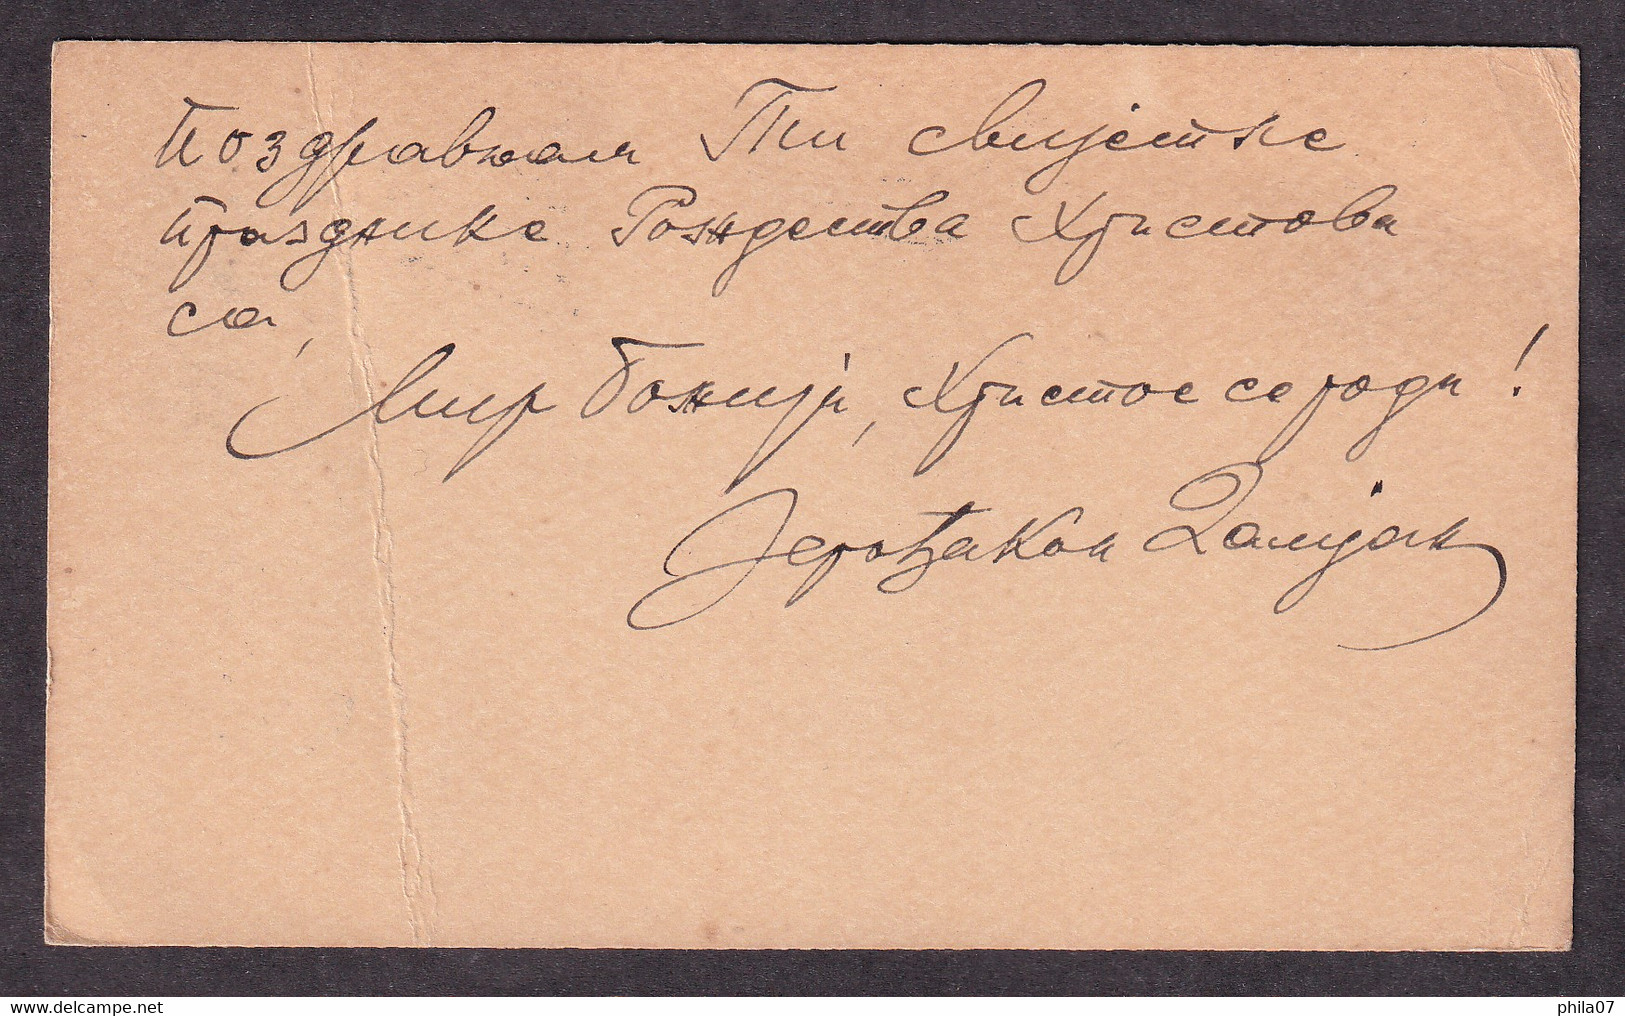 Поздрављам Ти свијетле
празднике Рождества Христова
са,
Мир Божији, Христос се роди!
Јерођакон Дамјан
phila07